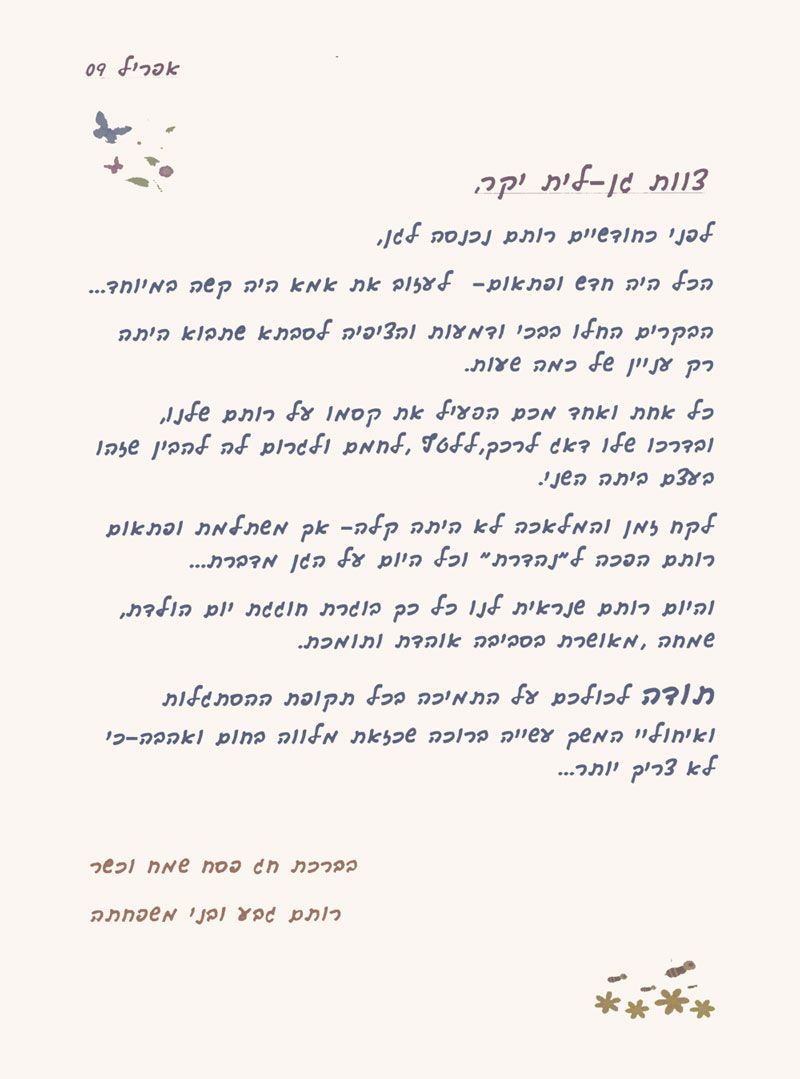 אפריל 09
צוות גן-לית יקר,
לפני כחודשיים רותם נכנסה לגן,
הכל היה חדש ופתאום- לעזוב את אמא היה קשה במיוחד...
הבקרים החלו בבכי ודמעות והציפיה לסבתא שתבוא היתה
רק עניין של כמה שעות.
כל אחת ואחד מכם הפעיל את קסמו על רותם שלנו,
ובדרכו שלו דאג לרכך,ללטף ,לחמם ולגרום לה להבין שזהו
בעצם ביתה השני.
לקח זמן והמלאכה לא היתה קלה- אך משתלמת ופתאום
רותם הפכה ל"נהדרת" וכל היום על הגן מדברת...
והיום רותם שנראית לנו כל כך בוגרת חוגגת יום הולדת,
שמחה ,מאושרת בסביבה אוהדת ותומכת.
תודה לכולכם על התמיכה בכל תקופת ההסתגלות
ואיחוליי המשך עשייה ברוכה שכזאת מלווה בחום ואהבה-כי
לא צריך יותר...
בברכת חג פסח שמח וכשר
רותם גבע ובני משפחתה